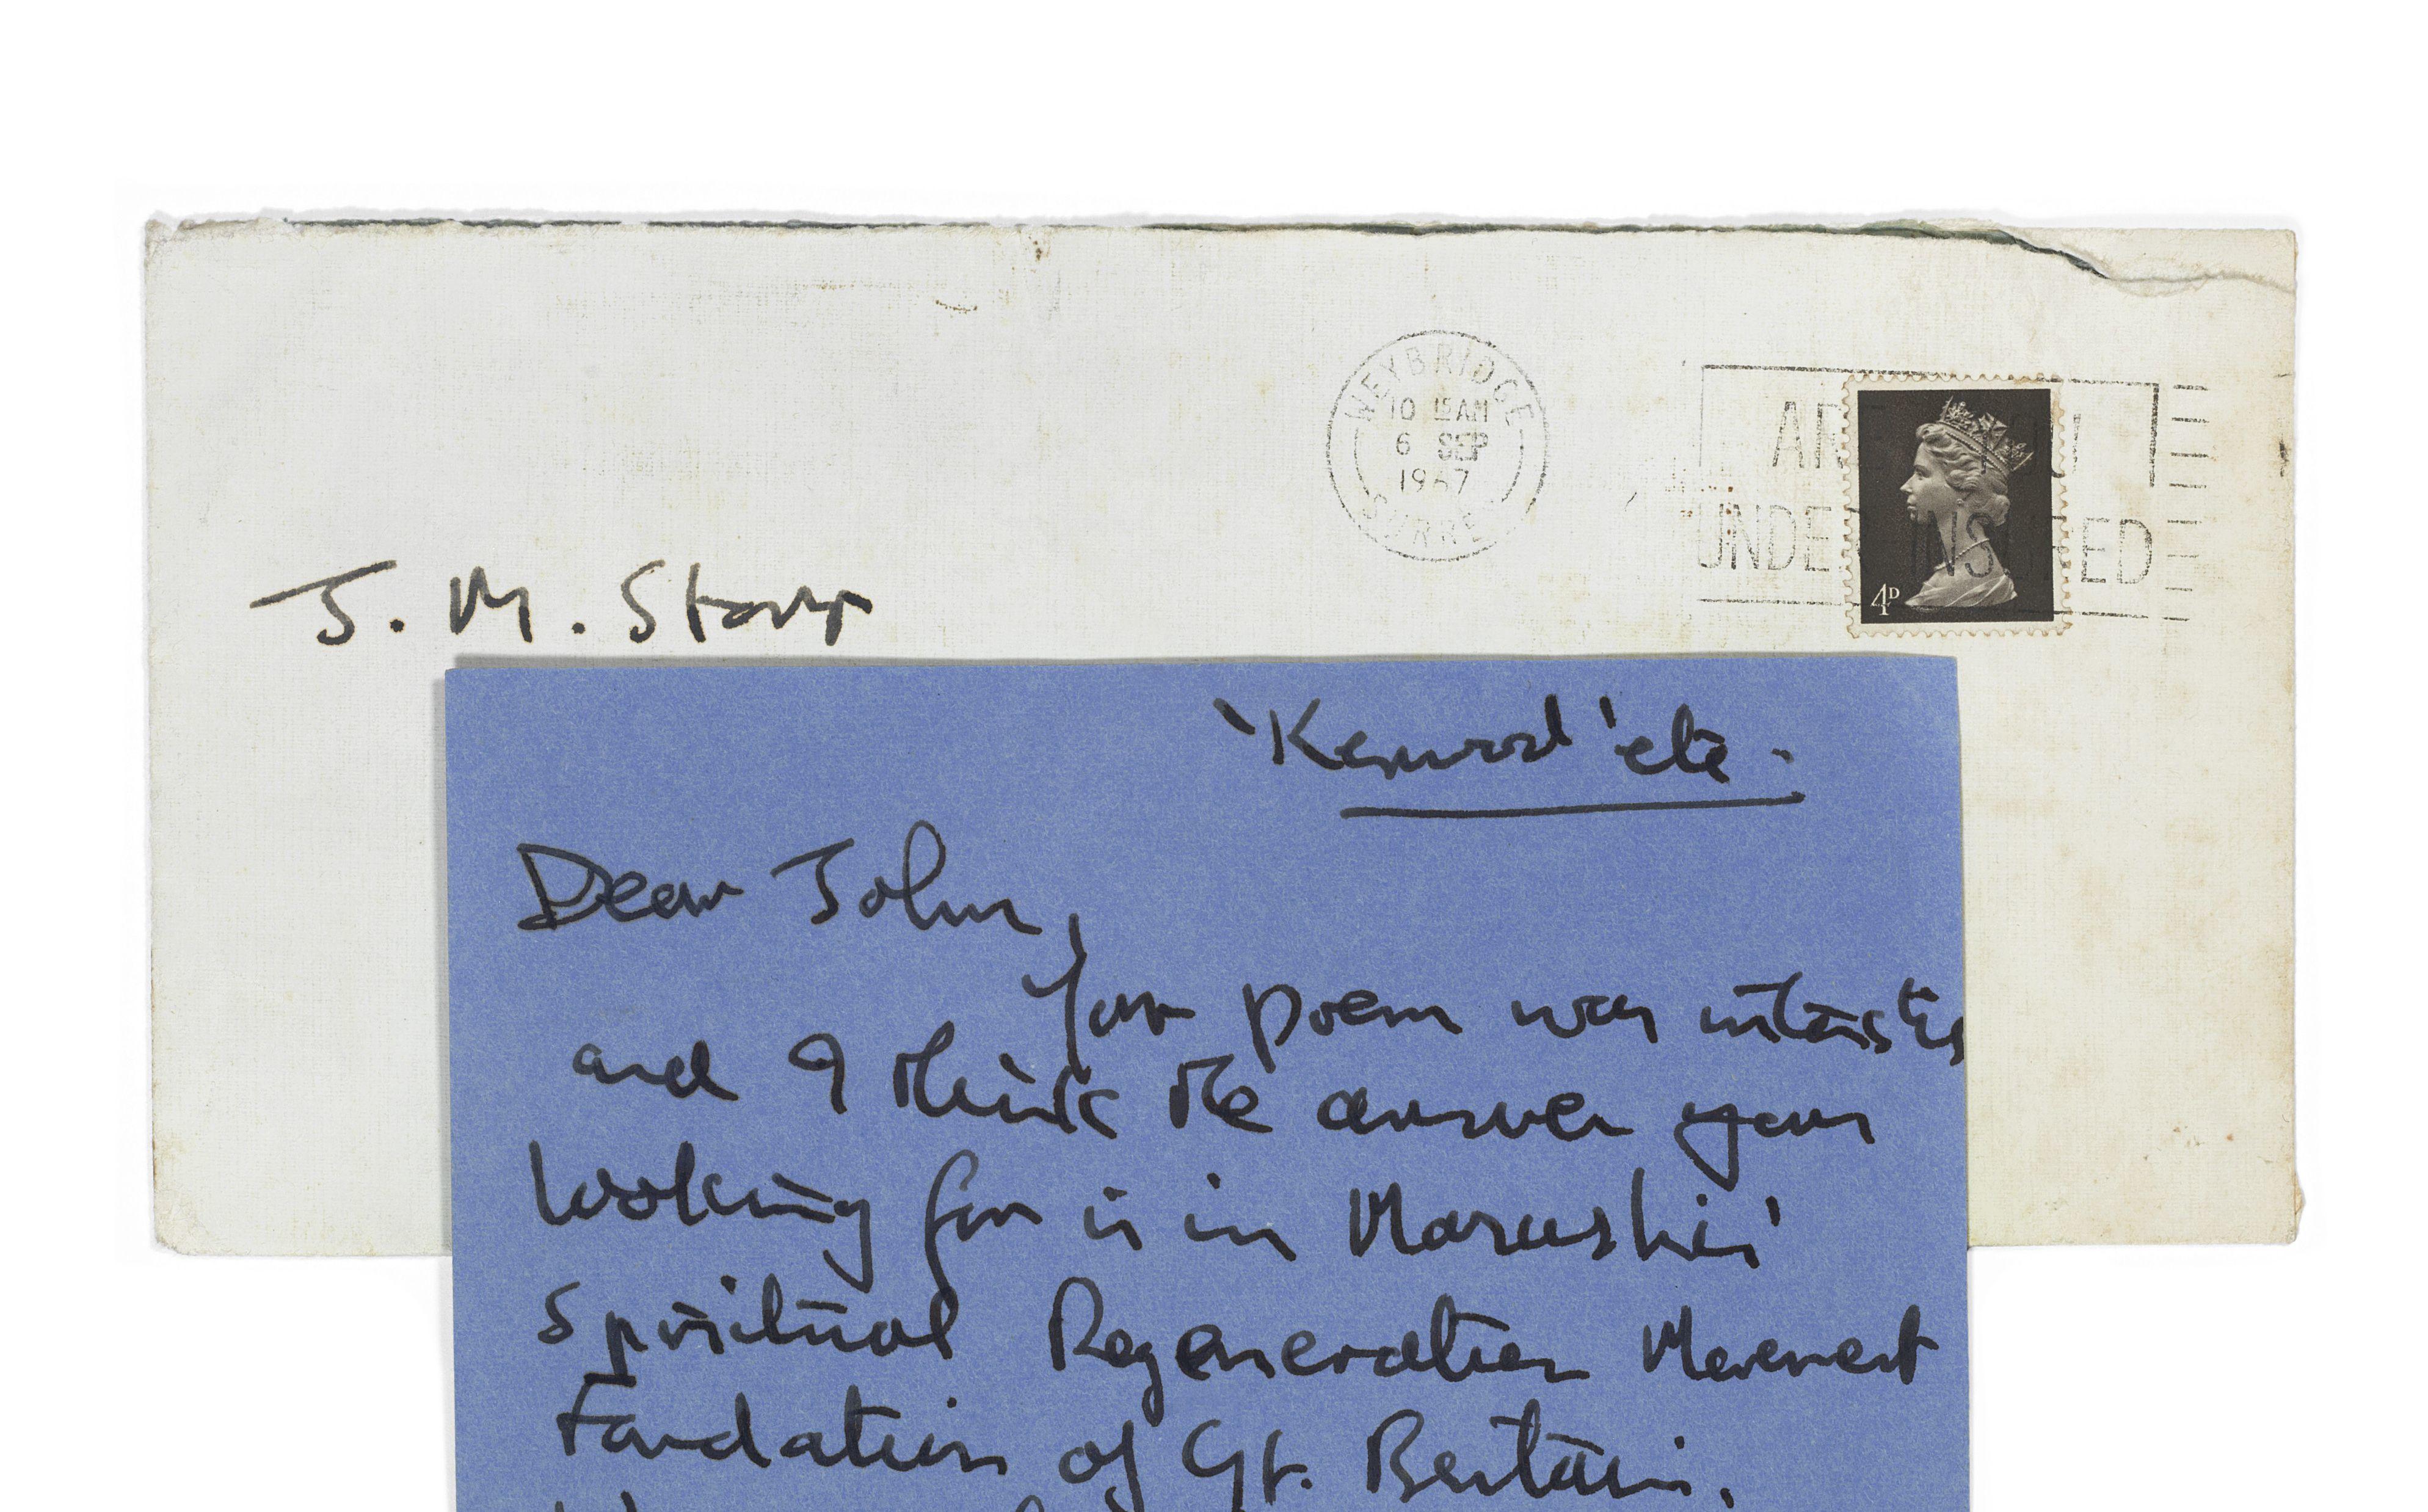 WEYBRIDGE
10 15 AM
6 SEP
1967
SURREY
ARE YOU
UNDER INSURED
4D
J. M. Stamp
'Kenwood' etc.
Dear John,
Your poem was interestin
and I think the answer your
looking for is in Maraishis'
Spiritual Regeneration Movement
Foundation of Gt. Britain.